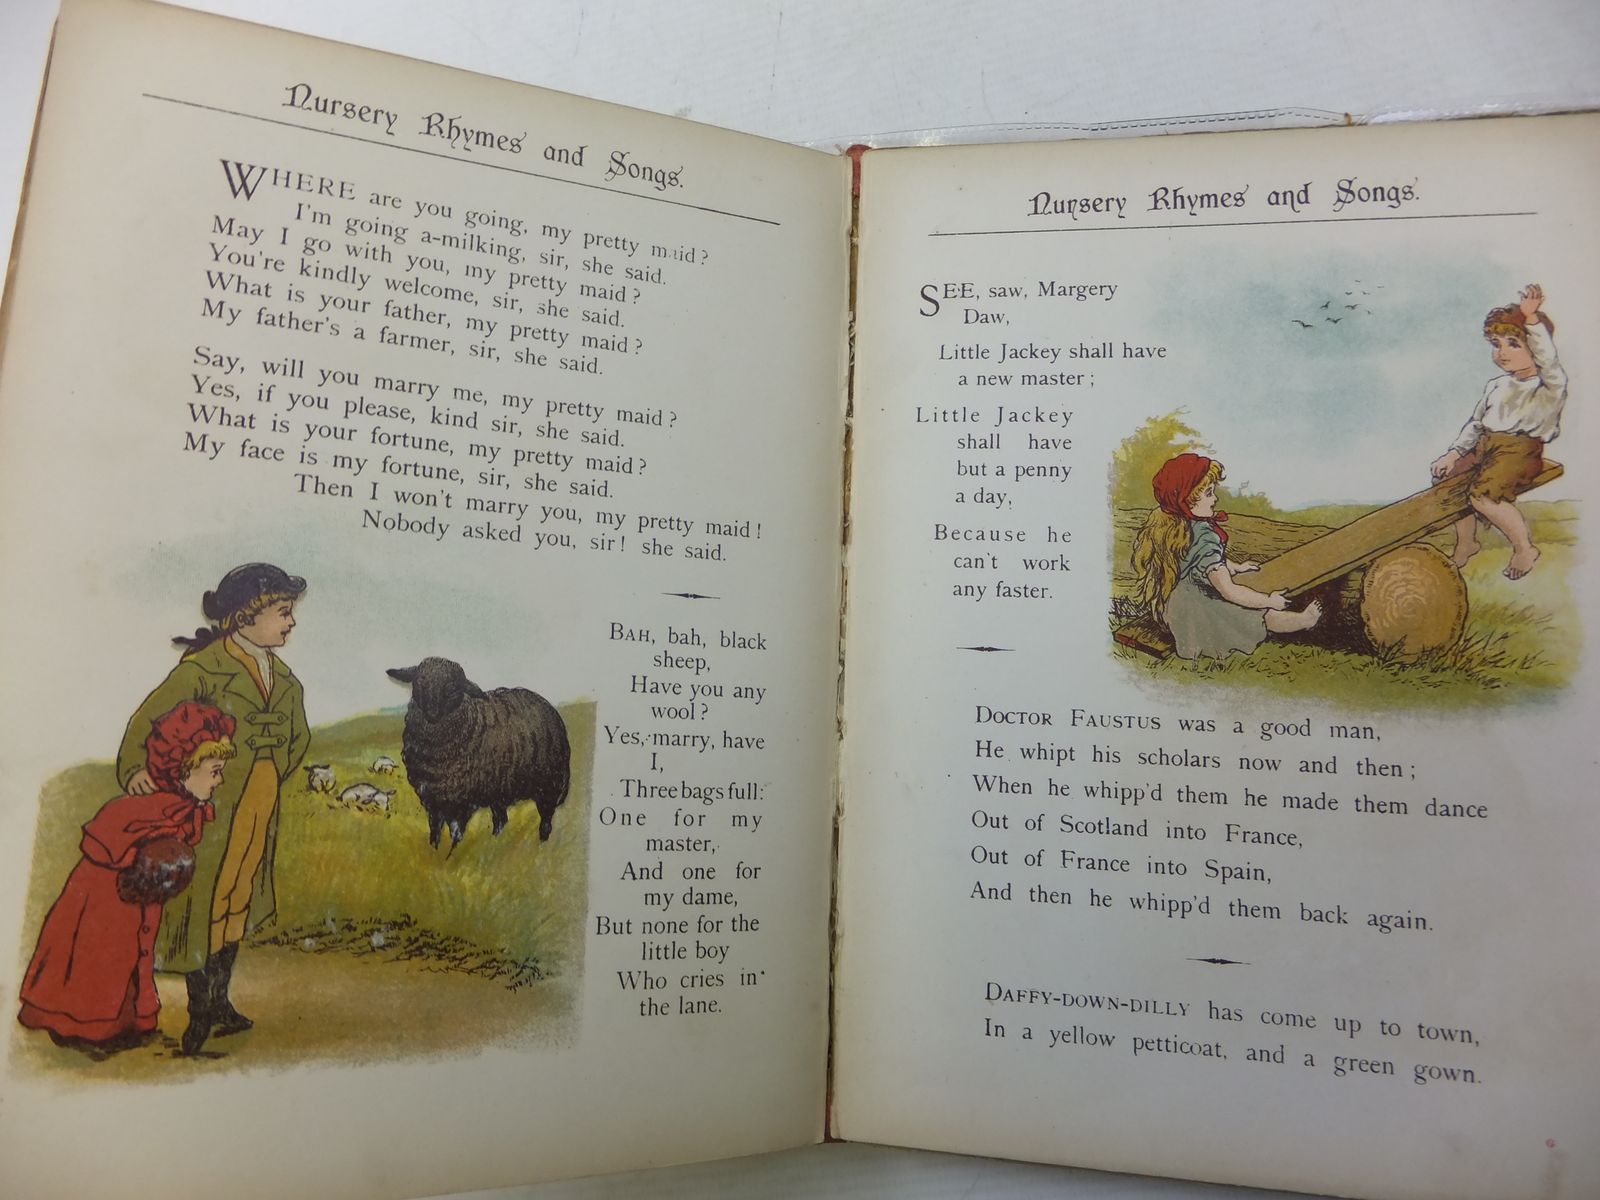 Nursery Rhymes and Songs.
WHERE are you going, my pretty maid?
I'm going a-milking, sir, she said.
May I go with you, my pretty maid?
You're kindly welcome, sir, she said.
What is your father, my pretty maid?
My father's a farmer, sir, she said.
Say, will you marry me, my pretty maid?
Yes, if you please, kind sir, she said.
What is your fortune, my pretty maid?
My face is my fortune, sir, she said.
Then I won't marry you, my pretty maid!
Nobody asked you, sir! she said.
BAH, bah, black
sheep,
Have you any
wool?
Yes, marry, have
I,
Three bags full:
One for my
master,
And one for
my dame,
But none for the
little boy
Who cries in
the lane.
Nursery Rhymes and Songs.
SEE, saw, Margery
Daw,
Little Jackey shall have
a new master;
Little Jackey
shall have
but a penny
a day,
Because he
can't work
any faster.
DOCTOR FAUSTUS was a good man,
He whipt his scholars now and then;
When he whipp'd them he made them dance
Out of Scotland into France,
Out of France into Spain,
And then he whipp'd them back again.
DAFFY-DOWN-DILLY has come up to town,
In a yellow petticoat, and a green gown.